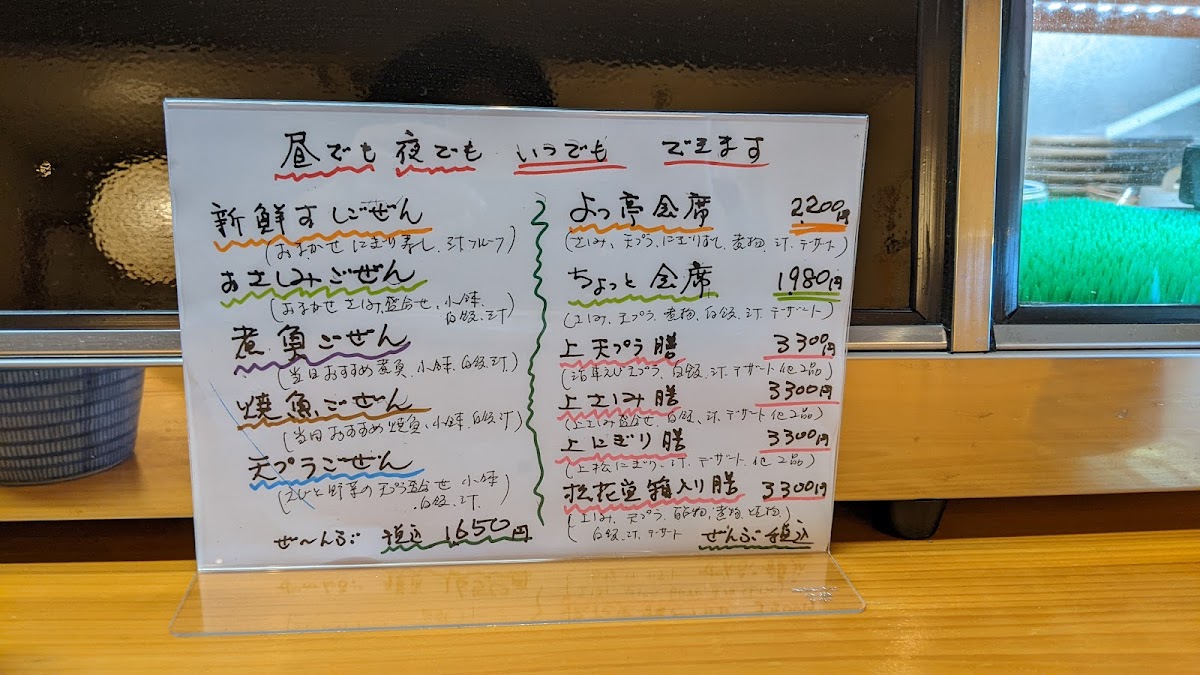 昼でも 夜でも いつでも できます
新鮮すしごぜん
(おまかせ にぎり寿し、汁 フルーツ)
おさしみごぜん
(おまかせ さしみ盛合せ、小鉢、
白飯、汁)
煮魚ごぜん
(当日おすすめ煮魚、小鉢、白飯、汁)
焼魚ごぜん
(当日おすすめ焼魚、小鉢、白飯、汁)
天プラごぜん
(えびと野菜の天プラ盛合せ 小鉢
白飯、汁)
ぜ〜んぶ 税込 1,650円
よつ亭会席 2,200円
(さしみ、天プラ、にぎりすし、煮物、汁、デザート)
ちょっと会席 1,980円
(さしみ、天プラ、煮物、白飯、汁、デザート)
上天プラ膳 3300円
(活車えび天プラ、白飯、汁、デザート他2品)
上さしみ膳 3300円
(上さしみ盛合せ、白飯、汁、デザート他2品)
上にぎり膳 3300円
(上松にぎり、汁、デザート、他2品)
松花堂箱入り膳 3300円
(さしみ、天プラ、煮物、焼物)
白飯、汁、デザート
ぜんぶ税込